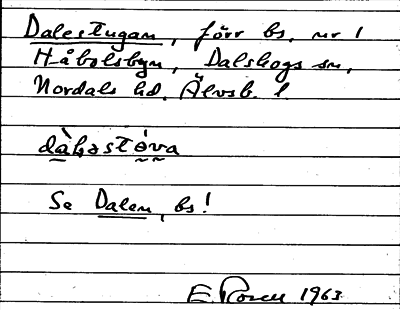 Dalestugan, förr bs, nr 1
Håbolsbyn, Dalskogs sn,
Nordals hd, Älvsb. l.
dàləstóva
Se Dalen, bs!
E Rosell 1963